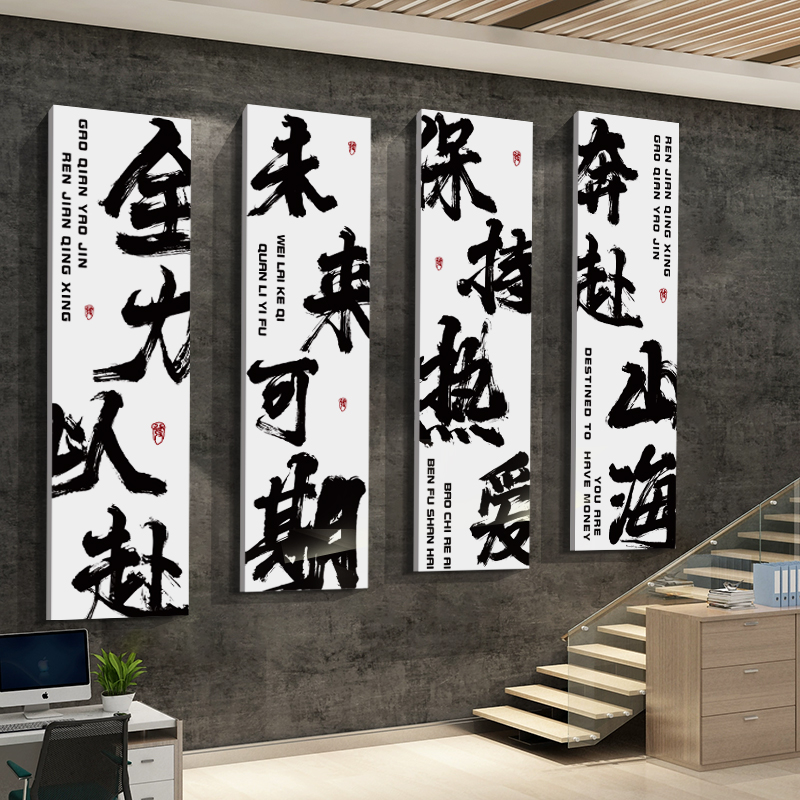 全力以赴
GAO QIAN YAO JIN
REN JIAN QING XING
未来可期
WEI LAI KE QI
QUAN LI YI FU
保持热爱
BAO CHI RE AI
BEN FU SHAN HAI
奔赴山海
REN JIAN QING XING
GAO QIAN YAO JIN
YOU ARE
DESTINED TO HAVE MONEY